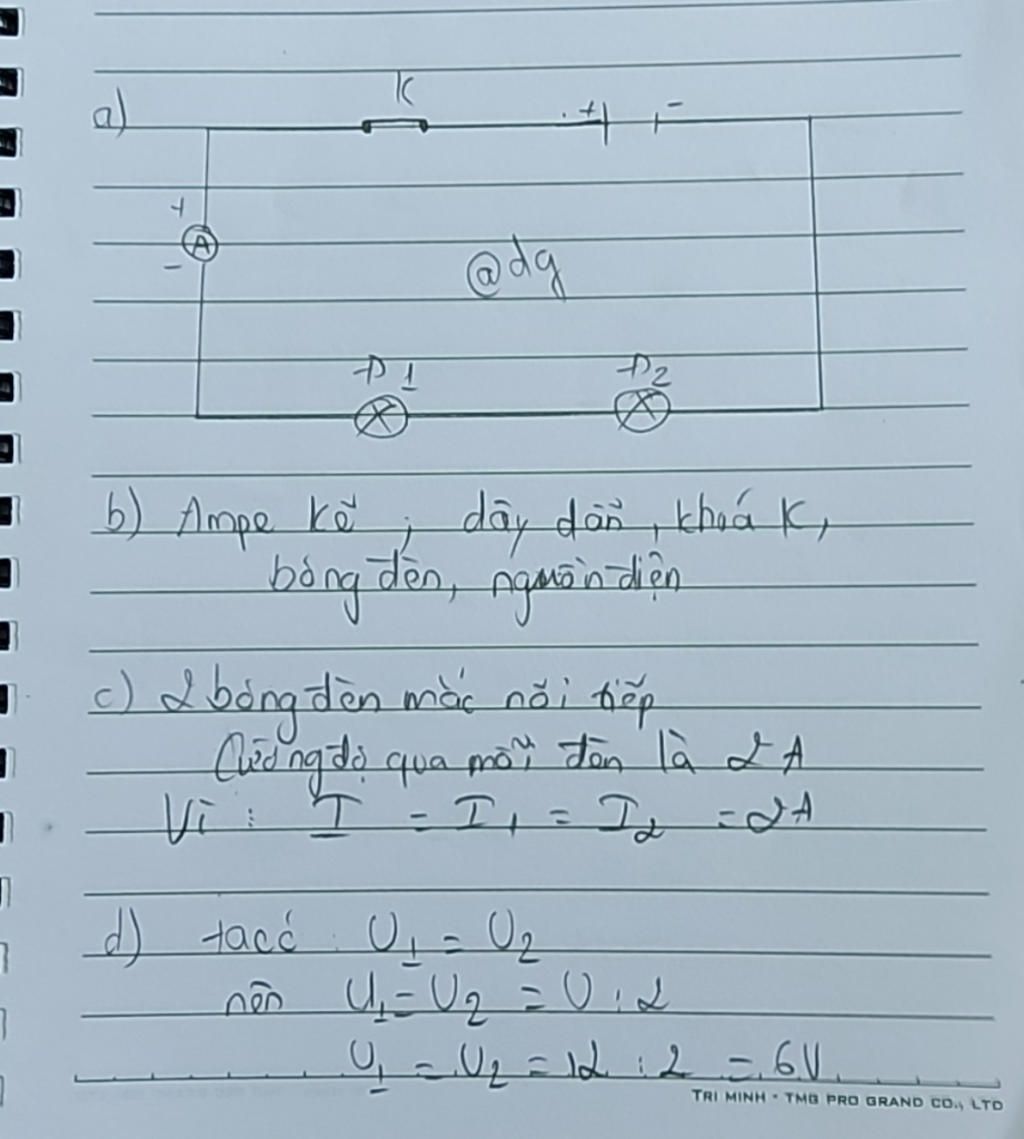 a)
K
+ -
+
A
-
@dg
Đ1 Đ2
b) Ampe kế, dây dẫn, khoá K,
bóng đèn, nguồn điện
c) 2 bóng đèn mắc nối tiếp
Cường độ qua mỗi đèn là 2A
Vì : I = I1 = I2 = 2A
d) ta có : U1 = U2
nên U1 = U2 = U : 2
U1 = U2 = 12 : 2 = 6V
TRI MINH - TMG PRO GRAND CO., LTD